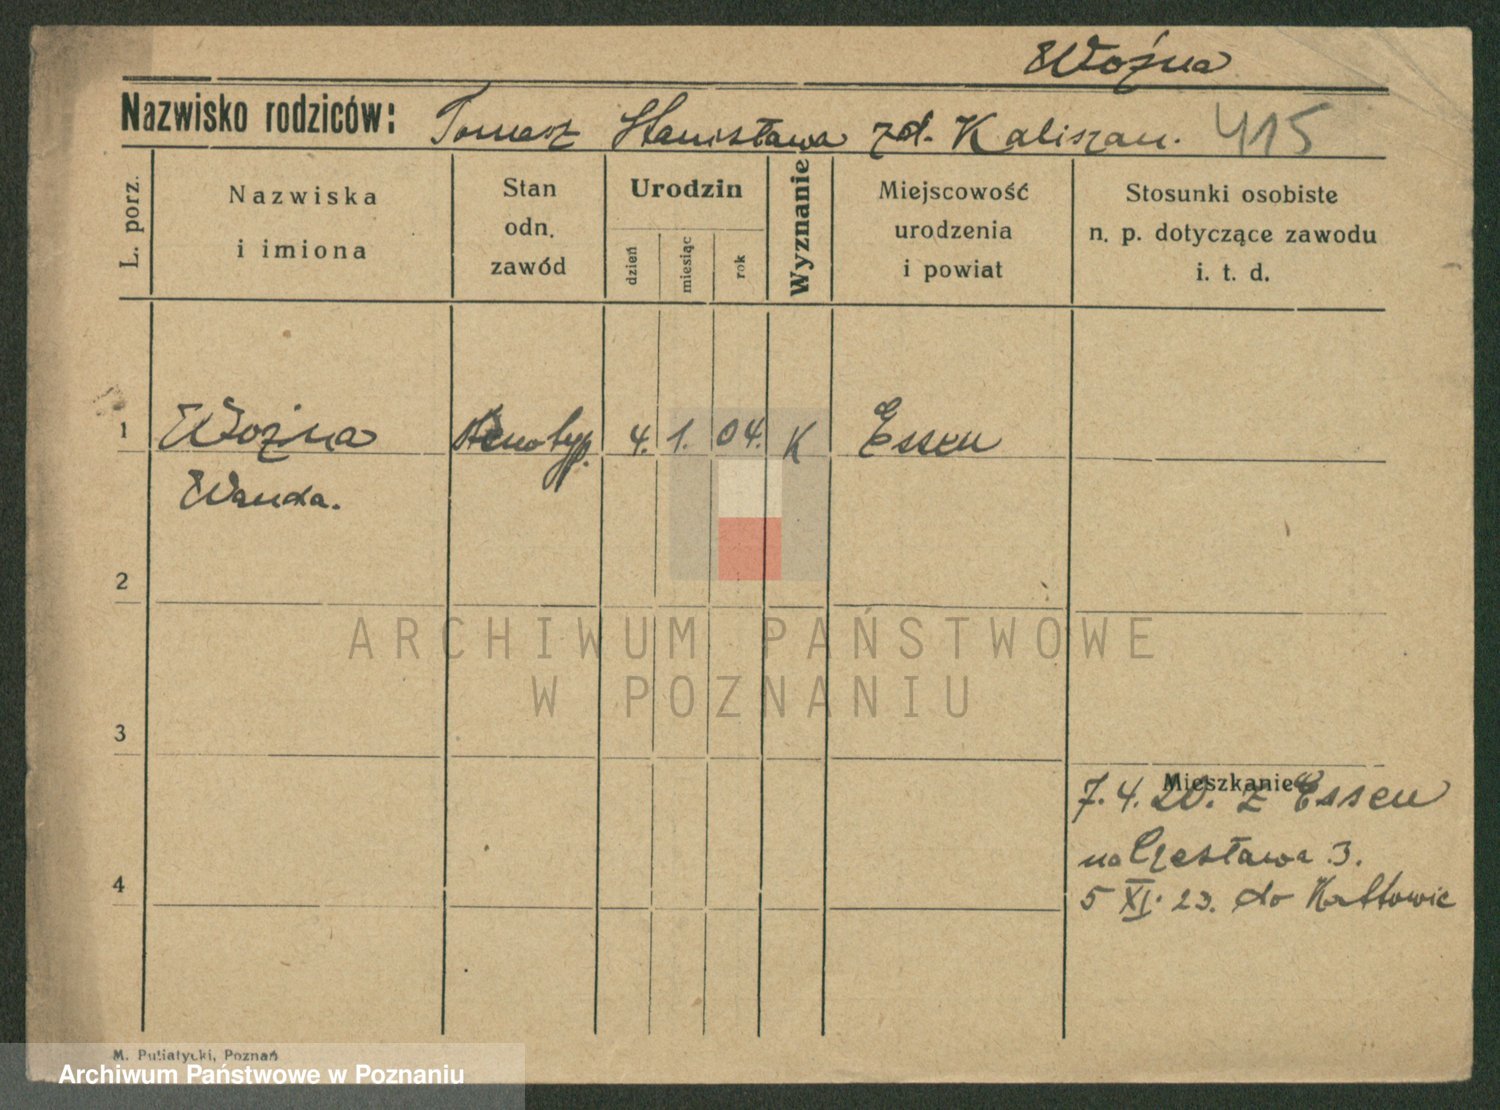 Woźna
Nazwisko rodziców: Tomasz Stanisława zd. Kaliszan. 415
L. porz.
Nazwiska
i imiona
Stan
odn.
zawód
Urodzin
dzień
miesiąc
rok
Wyznanie
Miejscowość
urodzenia
i powiat
Stosunki osobiste
n. p. dotyczące zawodu
i. t. d.
1 Woźna stenotyp. 4. 1. 04. K Essen
Wanda.
2
ARCHIWUM PAŃSTWOWE
W POZNANIU
3
Mieszkanie
7. 4. 20. z Essen
na Czesława 3.
4
5 XI. 23. do Kattowic
M. Putiatycki, Poznań
Archiwum Państwowe w Poznaniu